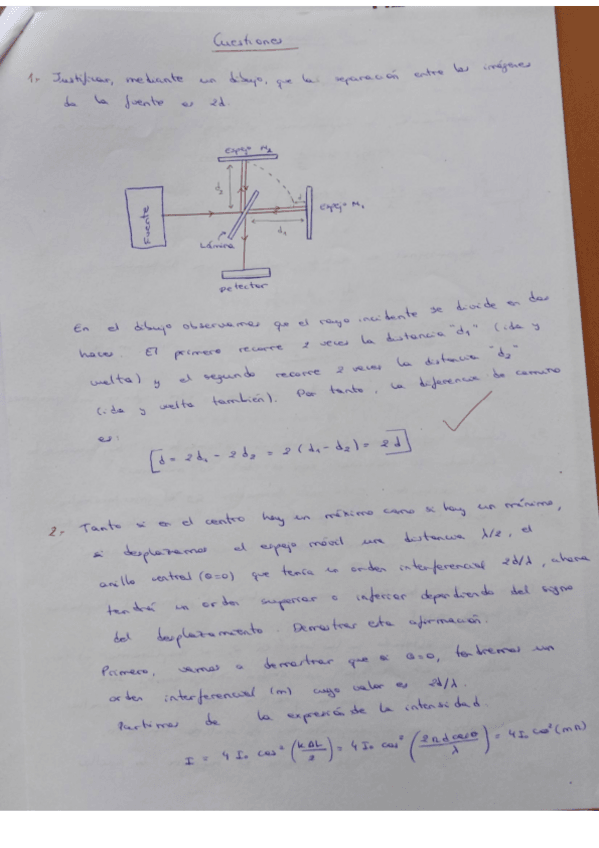 Cuestiones
1.- Justificar, mediante un dibujo, que la separación entre las imágenes
de la fuente es 2d.
Espejo M2
d2
d
Fuente
Espejo M1
Lámina
d1
Detector
En el dibujo observamos que el rayo incidente se divide en dos
haces. El primero recorre 2 veces la distancia "d1" (ida y
vuelta) y el segundo recorre 2 veces la distancia "d2"
(ida y vuelta también). Por tanto, la diferencia de camino
es:
[d = 2d1 - 2d2 = 2(d1 - d2) = 2d]
2.- Tanto si en el centro hay un máximo como si hay un mínimo,
si desplazamos el espejo móvil una distancia λ/2, el
anillo central (θ=0) que tenía un orden interferencial 2d/λ, ahora
tendrá un orden superior o inferior dependiendo del signo
del desplazamiento. Demostrar esta afirmación.
Primero, vamos a demostrar que si θ=0, tendremos un
orden interferencial (m) cuyo valor es 2d/λ.
Partimos de la expresión de la intensidad
I = 4 I₀ cos² (kΔL/2) = 4 I₀ cos² (2πd cosθ/λ) = 4 I₀ cos² (mπ)